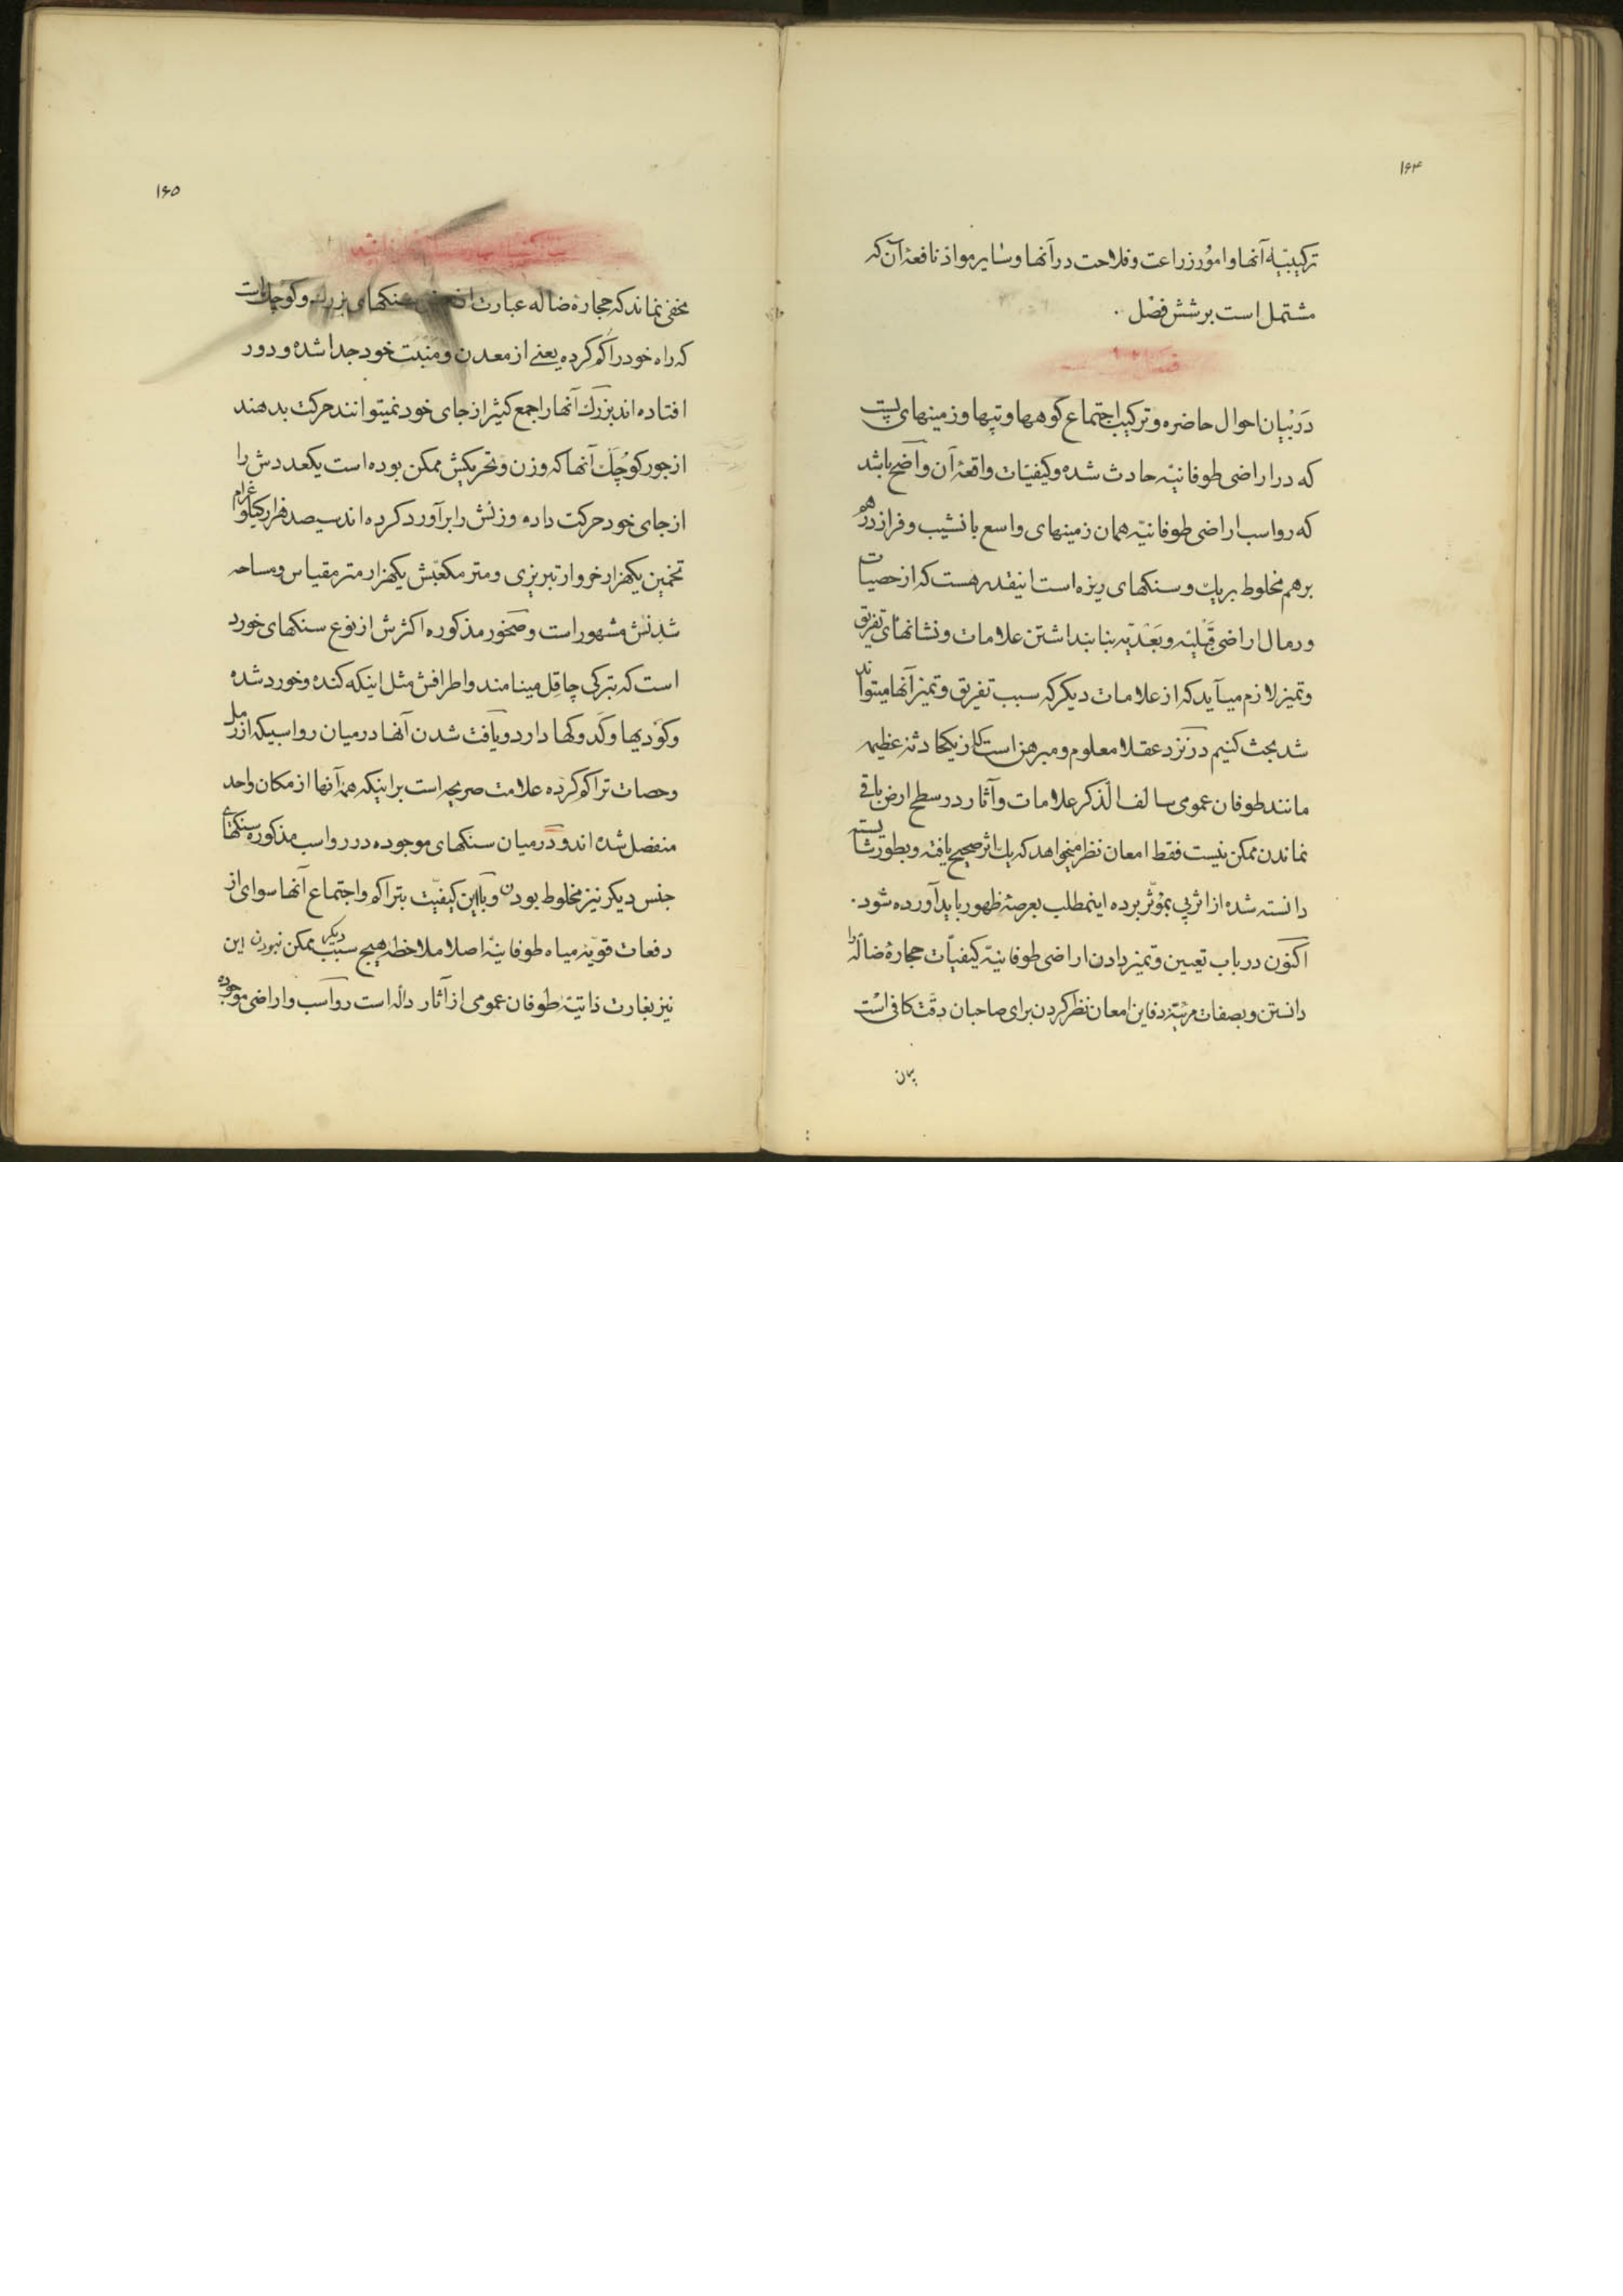 ۱۶۴
ترکیبیّهٔ آنها و امور زراعت و فلاحت در آنها و سایر مواد نافعهٔ آن که
مشتمل است بر شش فصل ..
فصل
در بیان احوال حاضره و ترکیب اجتماع کوهها و تپها و زمینهای پست
که در اراضی طوفانیّه حادث شده و کیفیّات واقعهٔ آن واضح باشد
که رواسب اراضی طوفانیّه همان زمینهای واسع با نشیب و فراز درهم
برهم مخلوط بریك و سنکهای ریزه است اینقدر هست که از حصیات
و رمال اراضی قبلیّه و بعدیّه بنا بنداشتن علامات و نشانهای تفریق
و تمیز لازم میآید که از علامات دیکر که سبب تفریق و تمیز آنها میتواند
شد بحث کنیم در نزد عقلا معلوم و مبرهن است که از یکحادثهٔ عظیمه
مانند طوفان عمومی سالف الذکر علامات و آثار در سطح ارض باقی
نماندن ممکن نیست فقط امعان نظر میخواهد که یك اثر صحیح یافته و بطور شایسته
دانسته شده از اثر پی بمؤثر برده اینمطلب بعرصهٔ ظهور باید آورده شود.
اکنون در باب تعیین و تمیز دادن اراضی طوفانیّه کیفیّات حجارهٔ ضالّه را
دانستن و بصفات مرئیّه دفاین امعان نظر کردن برای صاحبان دقّت کافی است
بیان
۱۶۵
مخفی نماند که حجارهٔ ضاله عبارت از سنکهای بزرك و کوچك است
که راه خود را کم کرده یعنے از معدن و منبت خود جدا شده و دور
افتاده اند بزرك آنها را جمع کثیر از جای خود نمیتوانند حرکت بدهند
از جور کوچك آنها که وزن و تحریکش ممکن بوده است یکعددش را
از جای خود حرکت داده وزنش را برآورد کرده اند سیصد هزار کیلوغرام
تخمین یکهزار خروار تبریزی و متر مکعبش یکهزار متر مقیاس و مساحه
شدنش مشهور است و صخور مذکوره اکثرش از نوع سنکهای خورد
است که بترکی چاقل مینامند و اطرافش مثل اینکه کنده و خورد شده
و کودیها و کدوکها دارد و یافت شدن آنها در میان رواسبیکه از رمل
و حصات تراکم کرده علامت صریحه است بر اینکه همهٔ آنها از مکان واحد
منفصل شده اند و در میان سنکهای موجوده در رواسب مذکوره سنکهای
جنس دیکر نیز مخلوط بودن و باین کیفیّت بتراکم و اجتماع آنها سوای از
دفعات قویّهٔ میاه طوفانیّه اصلا ملاحظه هیچ سبب دیکر ممکن نبودن این
نیز بغارت ذاتیّهٔ طوفان عمومی از آثار دالّه است رواسب و اراضی موجوده